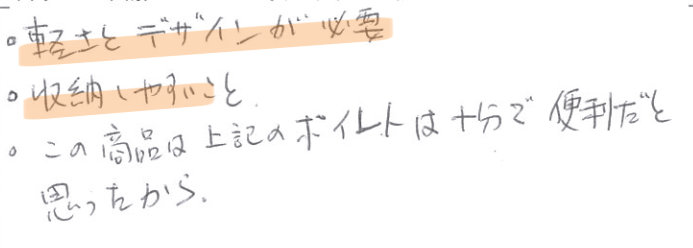 。軽さとデザインが必要
。収納しやすいこと
。この商品は上記のポイントは十分で便利だと
思ったから。